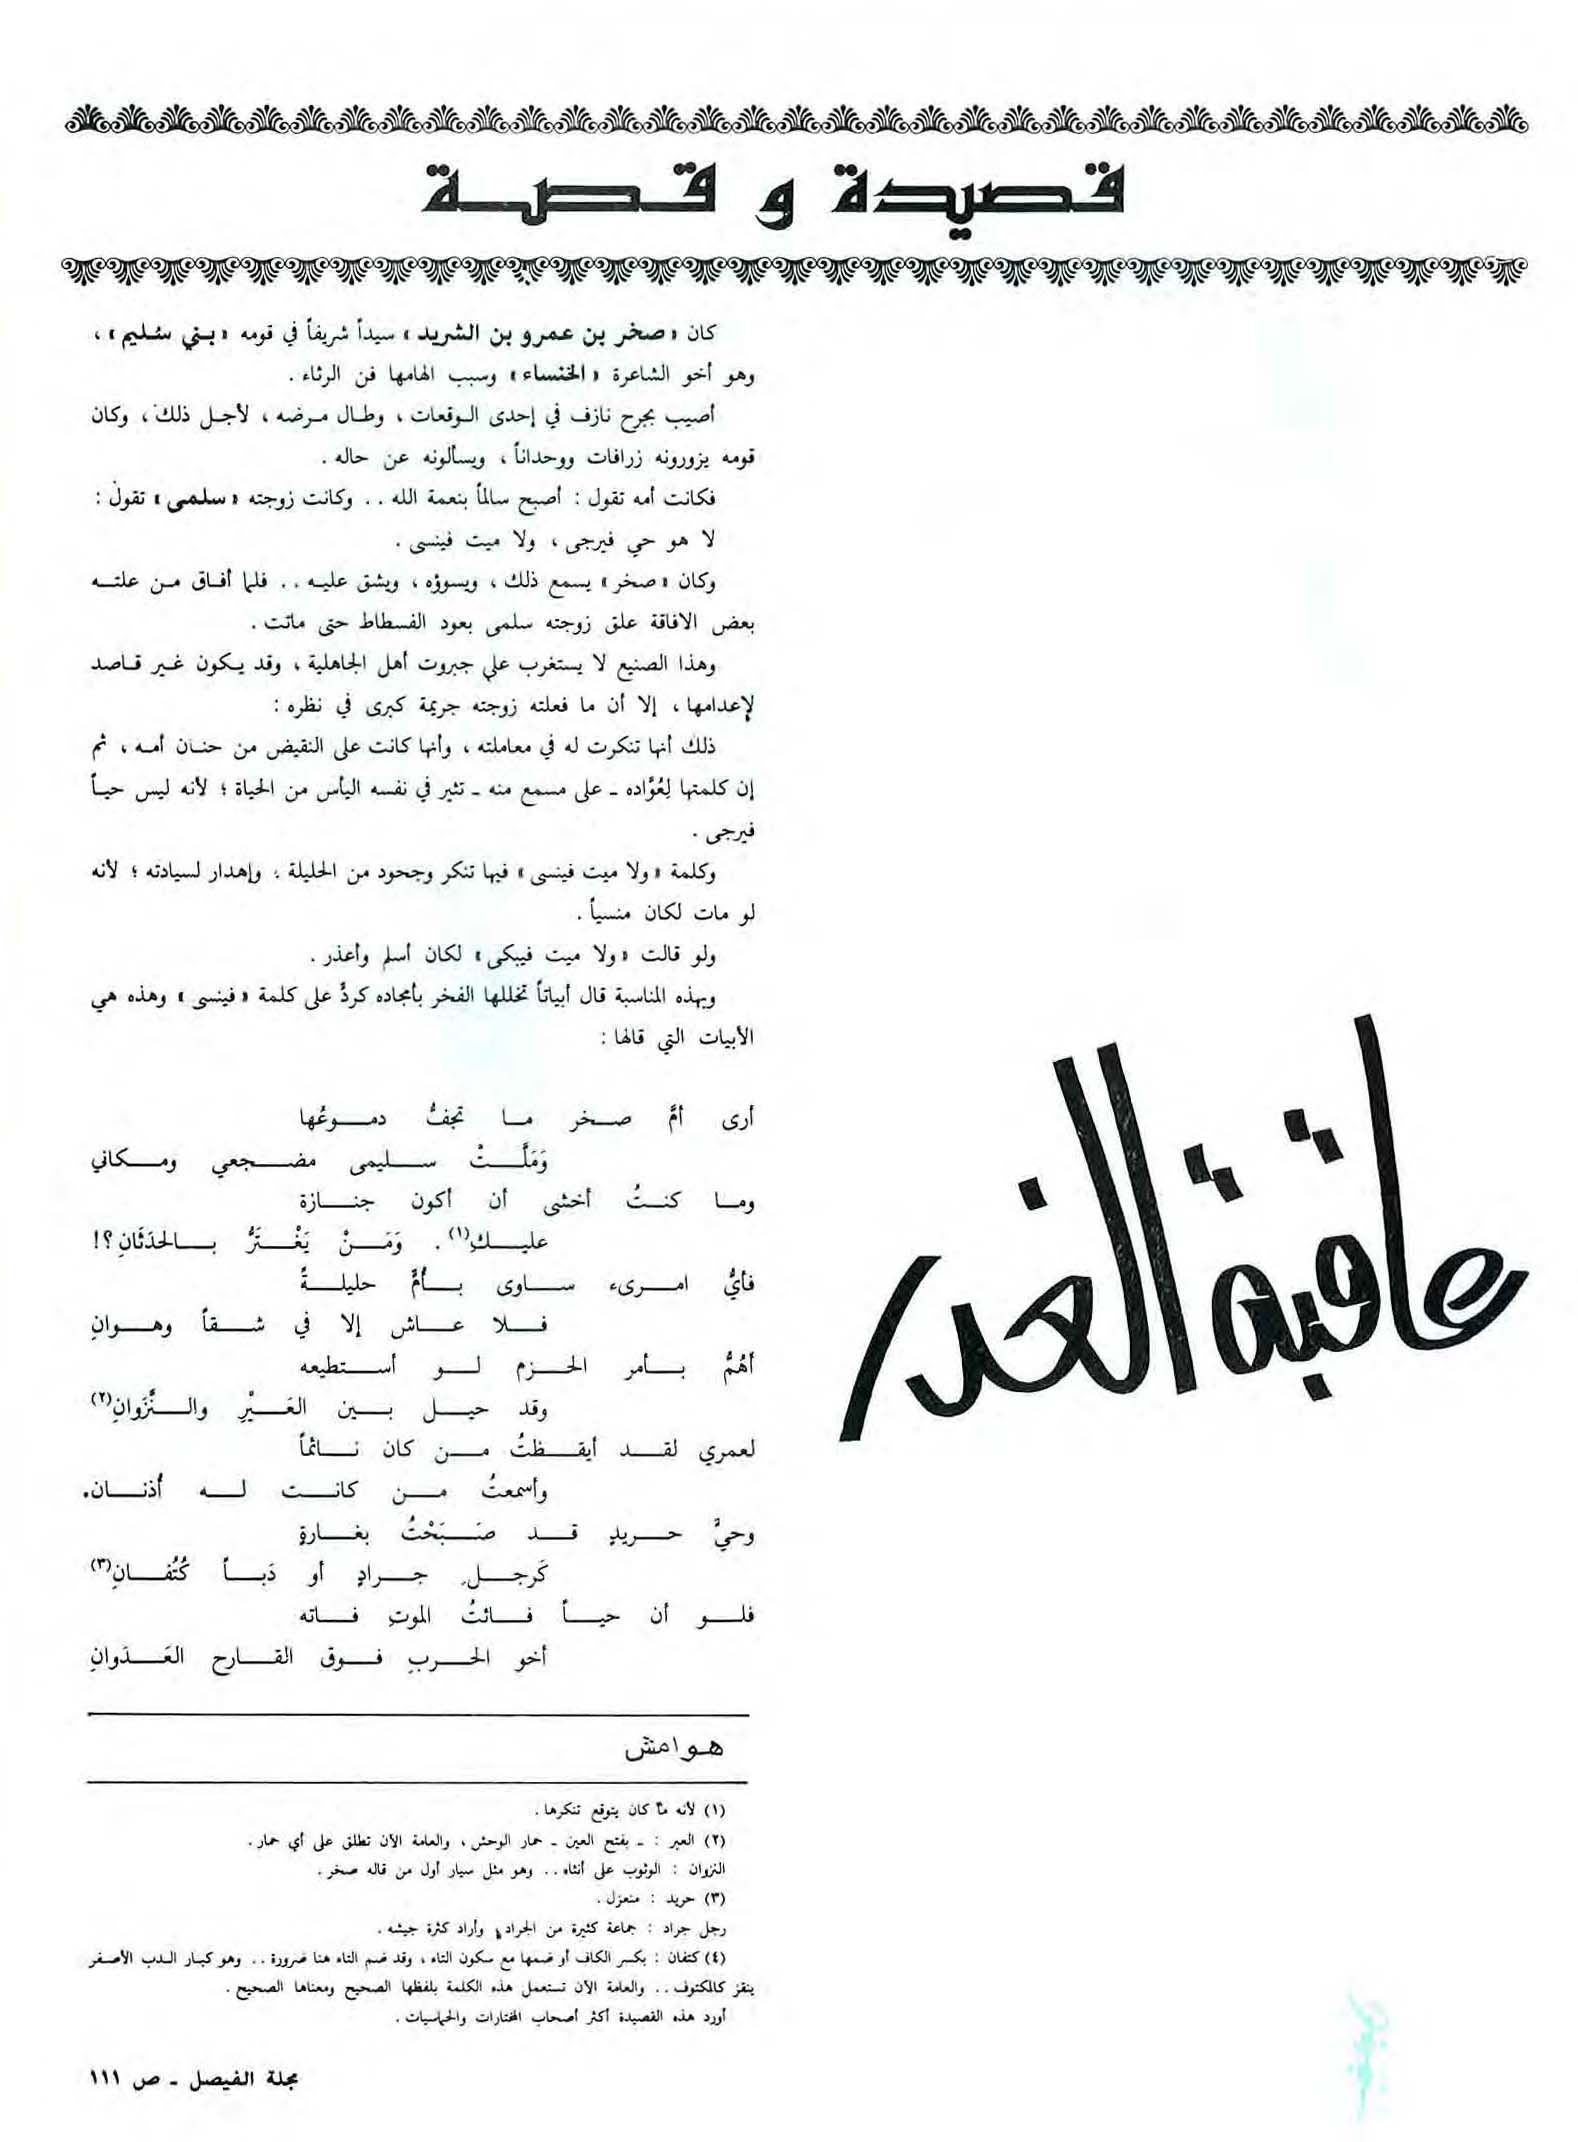 قصيدة و قصة
عاقبة الغدر
كان «صخر بن عمرو بن الشريد» سيداً شريفاً في قومه «بني سُليم» ،
وهو أخو الشاعرة «الخنساء» وسبب الهامها فن الرثاء .
أصيب بجرح نازف في إحدى الوقعات ، وطال مرضه ، لأجل ذلك ، وكان
قومه يزورونه زرافات ووحداناً ، ويسألونه عن حاله .
فكانت أمه تقول : أصبح سالماً بنعمة الله .. وكانت زوجته «سلمى» تقول :
لا هو حي فيرجى ، ولا ميت فينسى .
وكان «صخر» يسمع ذلك ، ويسوؤه ، ويشق عليه .. فلما أفاق من علته
بعض الافاقة علق زوجته سلمى بعود الفسطاط حتى ماتت .
وهذا الصنيع لا يستغرب على جبروت أهل الجاهلية ، وقد يكون غير قاصد
لإعدامها ، إلا أن ما فعلته زوجته جريمة كبرى في نظره :
ذلك أنها تنكرت له في معاملته ، وأنها كانت على النقيض من حنان أمه ، ثم
إن كلمتها لِعُوَّاده - على مسمع منه - تثير في نفسه اليأس من الحياة ؛ لأنه ليس حياً
فيرجى .
وكلمة «ولا ميت فينسى» فيها تنكر وجحود من الحليلة ، وإهدار لسيادته ؛ لأنه
لو مات لكان منسياً .
ولو قالت «ولا ميت فيبكى» لكان أسلم وأعذر .
وبهذه المناسبة قال أبياتاً تخللها الفخر بأمجاده كردٍّ على كلمة «فينسى» وهذه هي
الأبيات التي قالها :
أرى أمَّ صخر ما تجفُّ دموعُها
وَمَلَّتْ سليمى مضجعي ومكاني
وما كنتُ أخشى أن أكون جنازة
عليكِ(١) . وَمَنْ يَغْتَرُّ بالحدَثَانِ؟!
فأيُّ امرىء ساوى بأمٍّ حليلةً
فلا عاش إلا في شقاً وهوانِ
أهُمُّ بأمر الحزم لو أستطيعه
وقد حيل بين العَيْرِ والنَّزَوانِ(٢)
لعمري لقد أيقظتُ من كان نائماً
وأسمعتُ من كانت له أذنان.
وحيٍّ حريدٍ قد صَبَحْتُ بغارةٍ
كَرجلِ جرادٍ أو دَباً كُتُفانِ(٣)
فلو أن حياً فائتُ الموتِ فاته
أخو الحربِ فوق القارح العَدَوانِ
هوامش
(١) لأنه ما كان يتوقع تنكرها .
(٢) العير : - بفتح العين - حمار الوحش ، والعامة الآن تطلق على أي حمار .
النزوان : الوثوب على أنثاه .. وهو مثل سيار أول من قاله صخر .
(٣) حريد : منعزل .
رجل جراد : جماعة كثيرة من الجراد ، وأراد كثرة جيشه .
(٤) كتفان : بكسر الكاف أو ضمها مع سكون التاء ، وقد ضم التاء هنا ضرورة .. وهو كبار الدب الأصفر
ينقز كالمكتوف .. والعامة الآن تستعمل هذه الكلمة بلفظها الصحيح ومعناها الصحيح .
أورد هذه القصيدة أكثر أصحاب المختارات والحماسيات .
مجلة الفيصل - ص ١١١